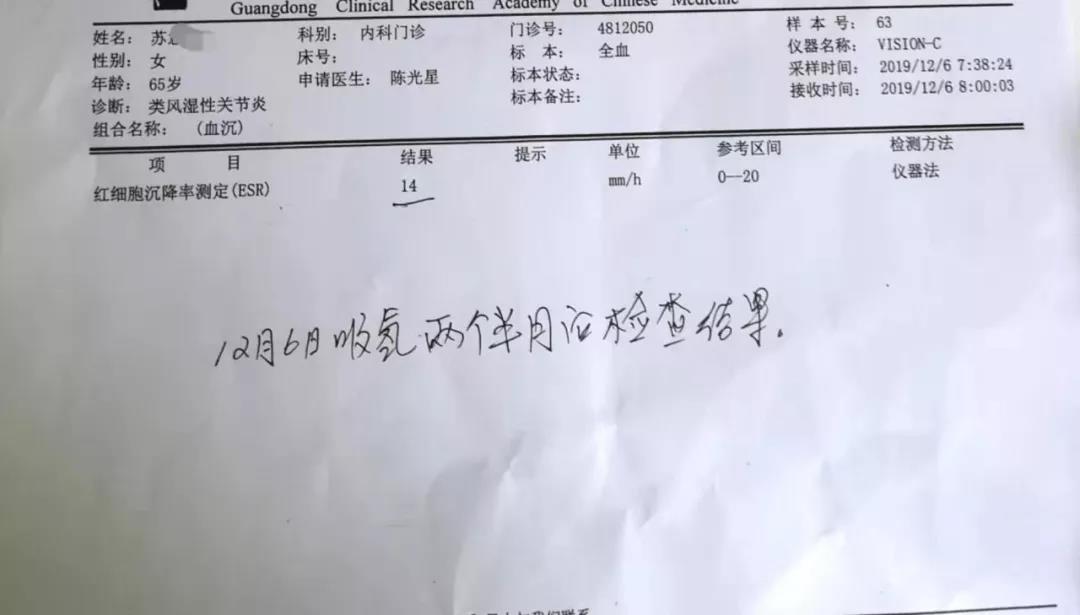 Guangdong Clinical Research Academy of Chinese Medicine
姓名: 苏 科别: 内科门诊 门诊号: 4812050 样本号: 63
性别: 女 床号: 标 本: 全血 仪器名称: VISION-C
年龄: 65岁 申请医生: 陈光星 标本状态: 采样时间: 2019/12/6 7:38:24
诊断: 类风湿性关节炎 标本备注: 接收时间: 2019/12/6 8:00:03
组合名称: (血沉)
项 目 结果 提示 单位 参考区间 检测方法
红细胞沉降率测定(ESR) 14 mm/h 0--20 仪器法
12月6日吸氢两个半月后检查结果.
我们联系